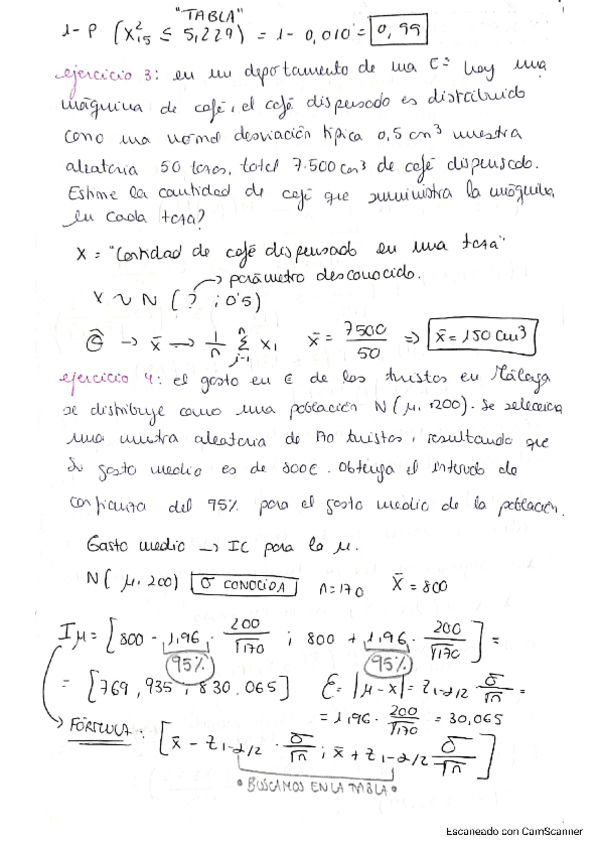 "TABLA"
1-P (X²₁₅ ≤ 5,229) = 1- 0,010 = 0,99
ejercicio 3: en un departamento de una C= hay una
máquina de café, el café dispensado es distribuido
como una normal desviación típica 0,5 cm³ muestra
aleatoria 50 tazas, total 7.500 cm³ de café dispensado.
Estime la cantidad de café que suministra la máquina
en cada taza?
X = "Cantidad de café dispensado en una taza"
→ parámetro desconocido.
X ~ N ( ? ; 0'5)
θ̂ → x̄ → 1/n Σ xᵢ x̄ = 7500/50 => x̄ = 150 cm³
ejercicio 4: el gasto en € de los turistas en Málaga
se distribuye como una población N(μ, 200). Se selecciona
una muestra aleatoria de 170 turistas, resultando que
su gasto medio es de 800€. Obtenga el intervalo de
confianza del 95% para el gasto medio de la población.
Gasto medio → IC para la μ.
N(μ, 200) σ CONOCIDA n=170 X̄ = 800
Iμ = [800 - 1,96 · 200/√170 ; 800 + 1,96 · 200/√170] =
95% 95%
= [769,935 ; 830.065] ε = |μ - x| = z₁₋α/₂ σ/√n =
= 1,96 · 200/√170 = 30,065
→ FÓRMULA: [x̄ - z₁₋α/₂ · σ/√n ; x̄ + z₁₋α/₂ σ/√n]
• BUSCAMOS EN LA TABLA •
Escaneado con CamScanner